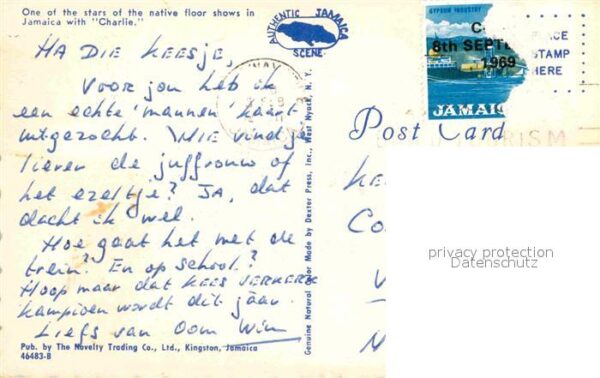 One of the stars of the native floor shows in
Jamaica with "Charlie."
AUTHENTIC JAMAICA
SCENE
GYPSUM INDUSTRY
8th SEPT
1969
JAMAIC
PLACE
STAMP
HERE
HA DIE KEESJE,
Voor jou heb ik
een echte 'mannen' kaart
uitgezocht. WIE vind je
liever de juffrouw of
het ezeltje? JA, dat
dacht ik wel.
Hoe gaat het met de
trein? En op school?
Hoop maar dat KEES VERKERK
kampioen wordt dit jaar.
Liefs van Oom Wim
Post Card
Genuine Natural Color Made by Dexter Press, Inc., West Nyack, N. Y.
privacy protection
Datenschutz
Pub. by The Novelty Trading Co., Ltd., Kingston, Jamaica
46483-B